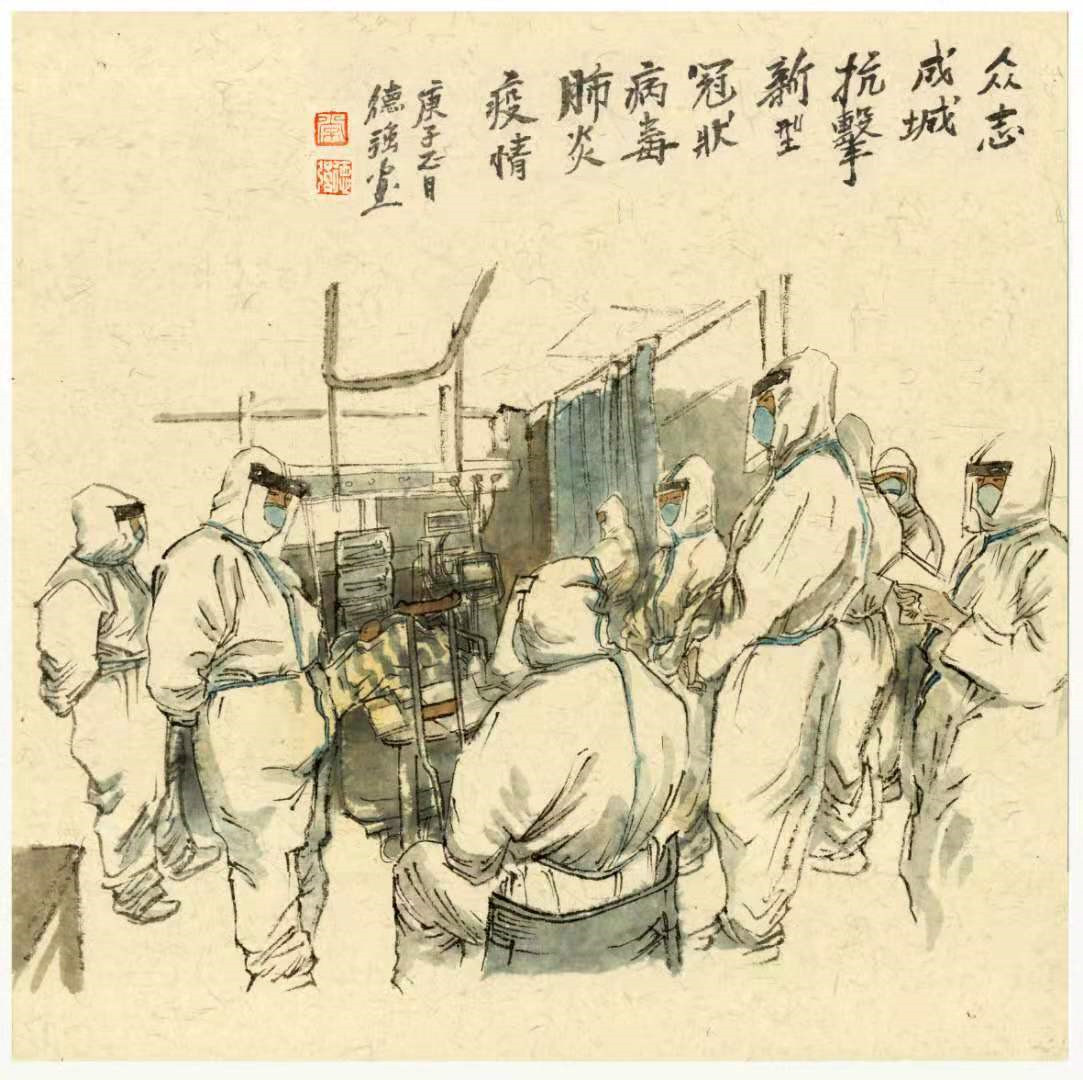 众志
成城
抗擊
新型
冠狀
病毒
肺炎
疫情
庚子正月
德强画